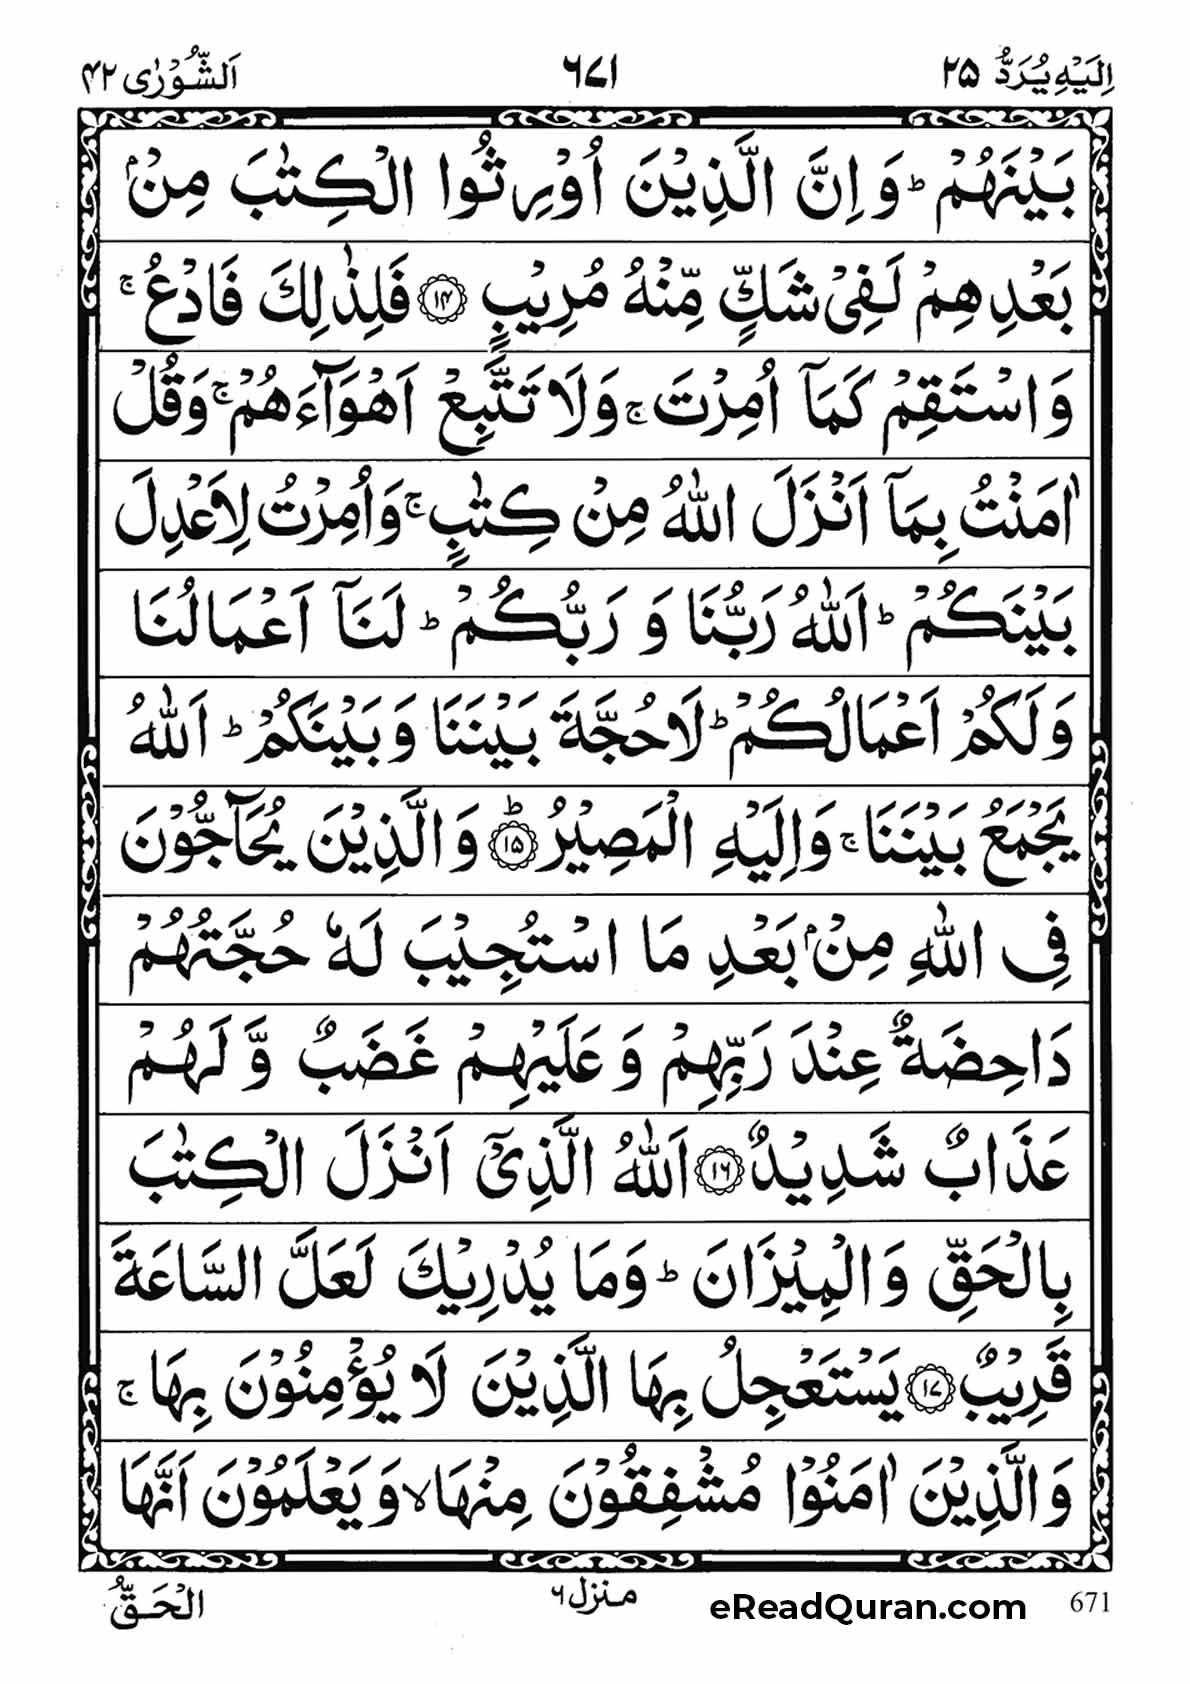 اِلَیْهِ یُرَدُّ ۲۵ ۶۷۱ اَلشُّوْرٰی ۴۲
بَیْنَهُمْ ؕ وَ اِنَّ الَّذِیْنَ اُوْرِثُوا الْكِتٰبَ مِنْۢ
بَعْدِهِمْ لَفِیْ شَكٍّ مِّنْهُ مُرِیْبٍ ۱۴ فَلِذٰلِكَ فَادْعُ ۚ
وَ اسْتَقِمْ كَمَاۤ اُمِرْتَ ۚ وَ لَا تَتَّبِعْ اَهْوَآءَهُمْ ۚ وَ قُلْ
اٰمَنْتُ بِمَاۤ اَنْزَلَ اللّٰهُ مِنْ كِتٰبٍ ۚ وَ اُمِرْتُ لِاَعْدِلَ
بَیْنَكُمْ ؕ اَللّٰهُ رَبُّنَا وَ رَبُّكُمْ ؕ لَنَاۤ اَعْمَالُنَا
وَ لَكُمْ اَعْمَالُكُمْ ؕ لَا حُجَّةَ بَیْنَنَا وَ بَیْنَكُمْ ؕ اَللّٰهُ
یَجْمَعُ بَیْنَنَا ۚ وَ اِلَیْهِ الْمَصِیْرُ ؕ۱۵ وَ الَّذِیْنَ یُحَآجُّوْنَ
فِی اللّٰهِ مِنْۢ بَعْدِ مَا اسْتُجِیْبَ لَهٗ حُجَّتُهُمْ
دَاحِضَةٌ عِنْدَ رَبِّهِمْ وَ عَلَیْهِمْ غَضَبٌ وَّ لَهُمْ
عَذَابٌ شَدِیْدٌ ۱۶ اَللّٰهُ الَّذِیْۤ اَنْزَلَ الْكِتٰبَ
بِالْحَقِّ وَ الْمِیْزَانَ ؕ وَ مَا یُدْرِیْكَ لَعَلَّ السَّاعَةَ
قَرِیْبٌ ۱۷ یَسْتَعْجِلُ بِهَا الَّذِیْنَ لَا یُؤْمِنُوْنَ بِهَا ۚ
وَ الَّذِیْنَ اٰمَنُوْا مُشْفِقُوْنَ مِنْهَا ۙ وَ یَعْلَمُوْنَ اَنَّهَا
671 eReadQuran.com منزل ۶ الْحَقُّ